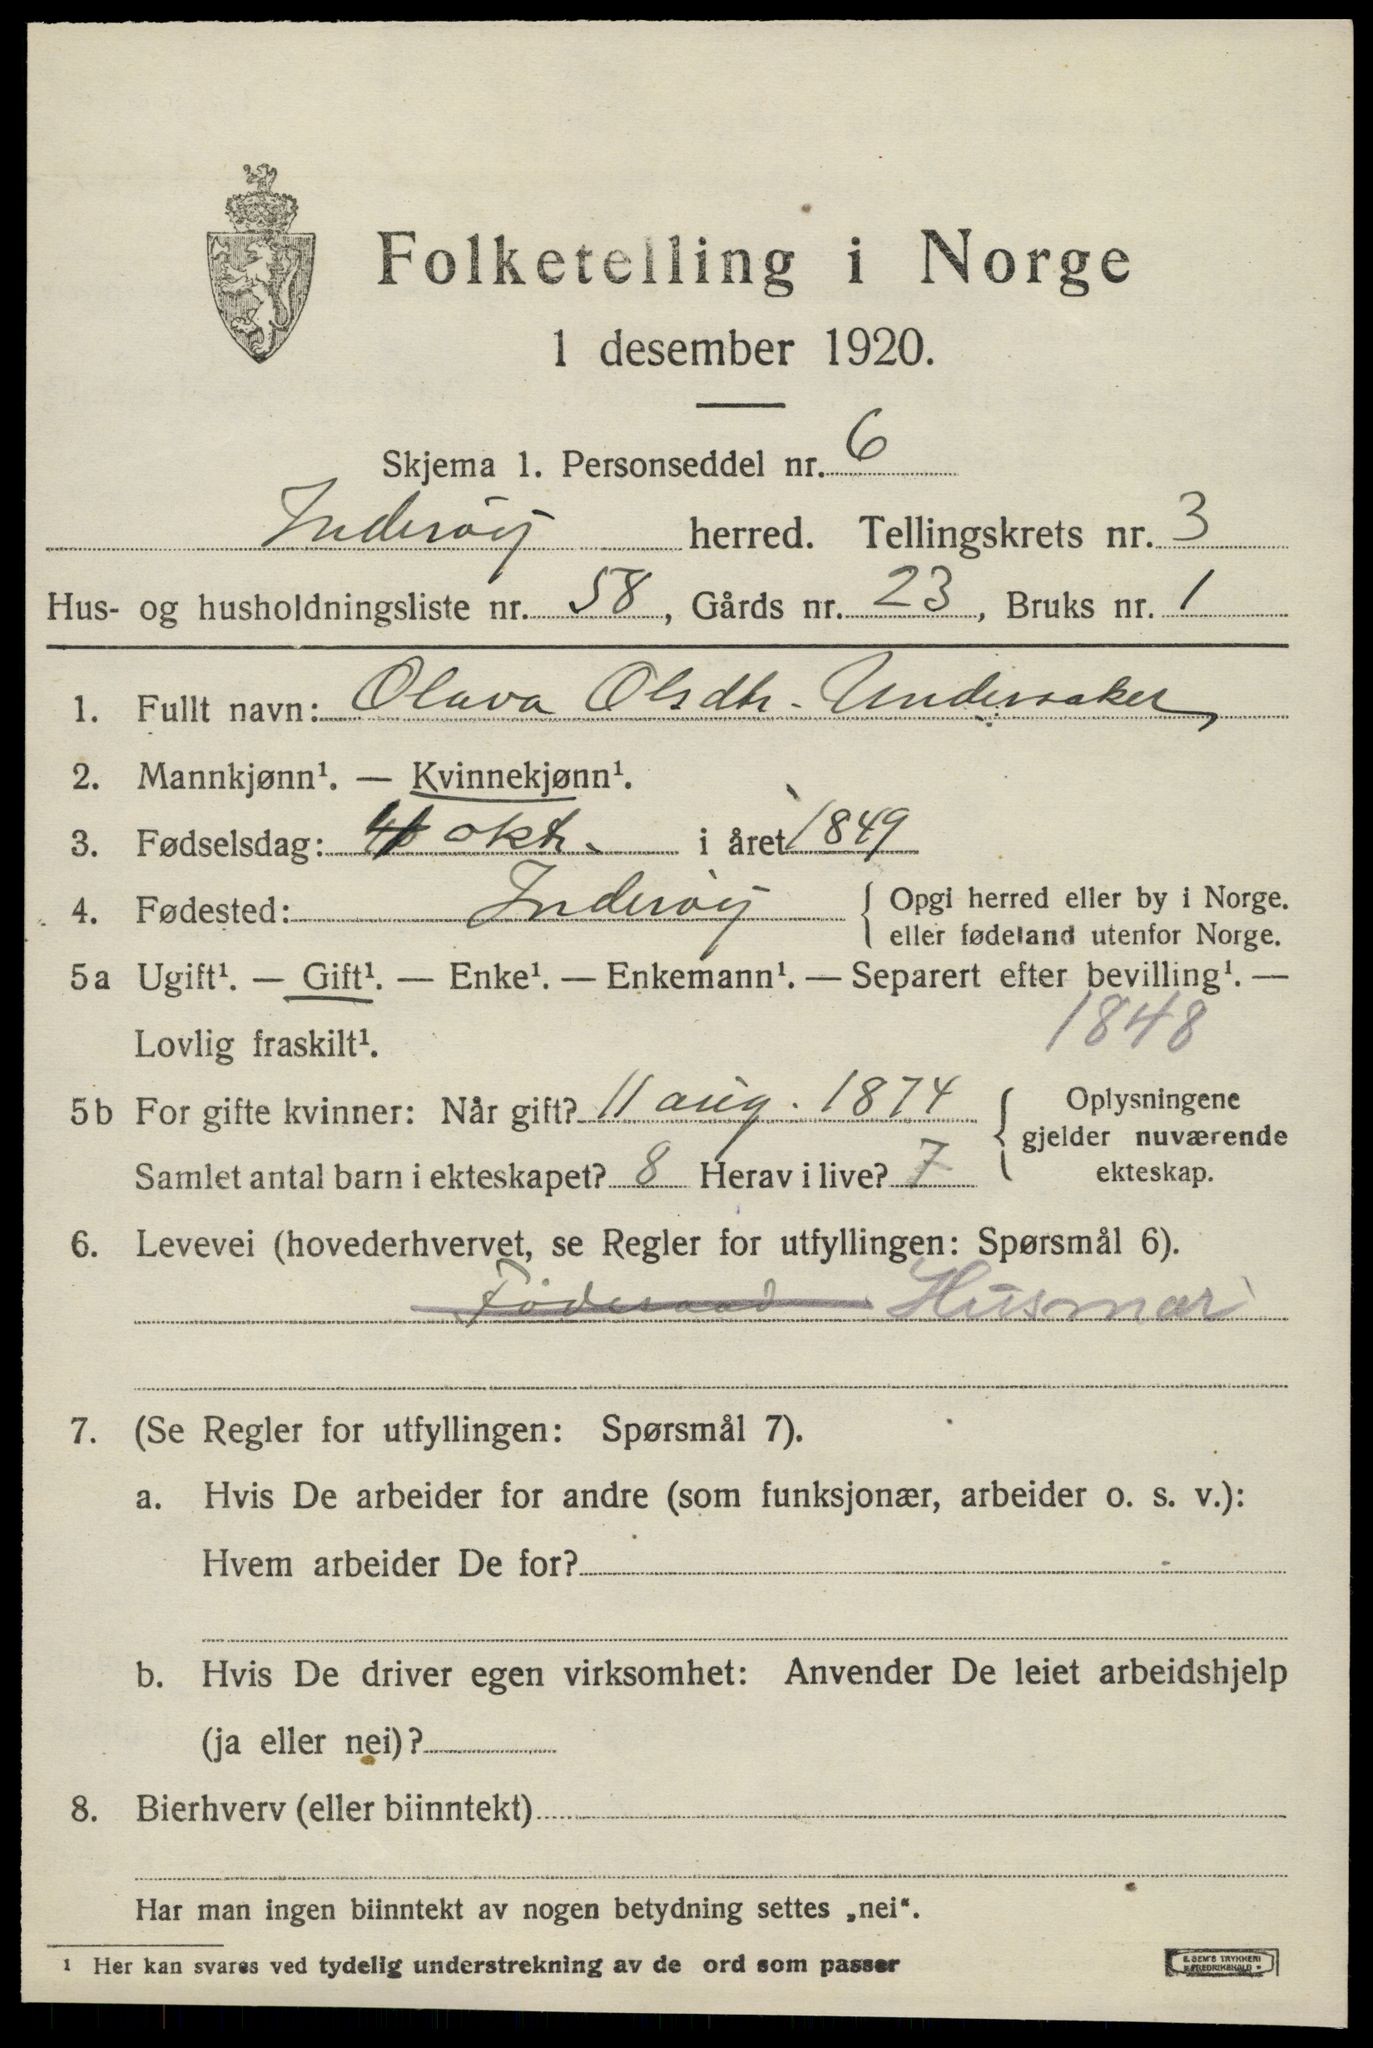 Folketelling i Norge
1 desember 1920.
Skjema 1. Personseddel nr. 6
Inderøy herred. Tellingskrets nr. 3
Hus- og husholdningsliste nr. 58, Gårds nr. 23, Bruks nr. 1
1. Fullt navn: Olava Olsdtr. Undersaker
2. Mannkjønn¹. — Kvinnekjønn¹.
3. Fødselsdag: okt. i året 1849
4. Fødested: Inderøy { Opgi herred eller by i Norge.
eller fødeland utenfor Norge.
5a Ugift¹. — Gift¹. — Enke¹. — Enkemann¹. — Separert efter bevilling¹. —
Lovlig fraskilt¹. 1848
5b For gifte kvinner: Når gift? 11 aug. 1874 { Oplysningene
gjelder nuværende
Samlet antal barn i ekteskapet? 8 Herav i live? 7 ekteskap.
6. Levevei (hovederhvervet, se Regler for utfyllingen: Spørsmål 6).
Føderaad Husmor
7. (Se Regler for utfyllingen: Spørsmål 7).
a. Hvis De arbeider for andre (som funksjonær, arbeider o. s. v.):
Hvem arbeider De for?
b. Hvis De driver egen virksomhet: Anvender De leiet arbeidshjelp
(ja eller nei)?
8. Bierhverv (eller biinntekt)
Har man ingen biinntekt av nogen betydning settes „nei“.
¹ Her kan svares ved tydelig understrekning av de ord som passer